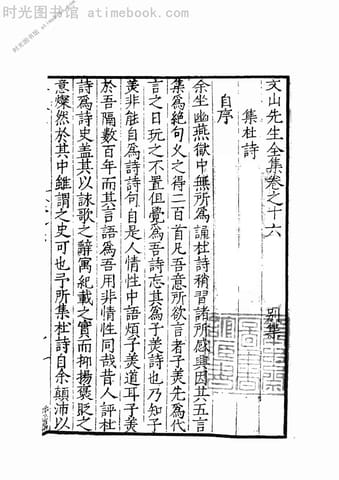 时光图书馆 atimebook.com
文山先生全集卷之十六
別集
集杜詩
自序
余坐幽燕獄中無所爲誦杜詩稍習諸所感興因其五言
集爲絶句乂之得二百首凡吾意所欲言者子美先爲代
言之日玩之不置但覺爲吾詩忘其爲子美詩也乃知子
美非能自爲詩詩句自是人情性中語煩子美道耳子美
於吾隔數百年而其言語爲吾用非情性同哉昔人評杜
詩爲詩史盖其以詠歌之辭寓紀載之實而抑揚褒貶之
意燦然於其中雖謂之史可也予所集杜詩自余顛沛以